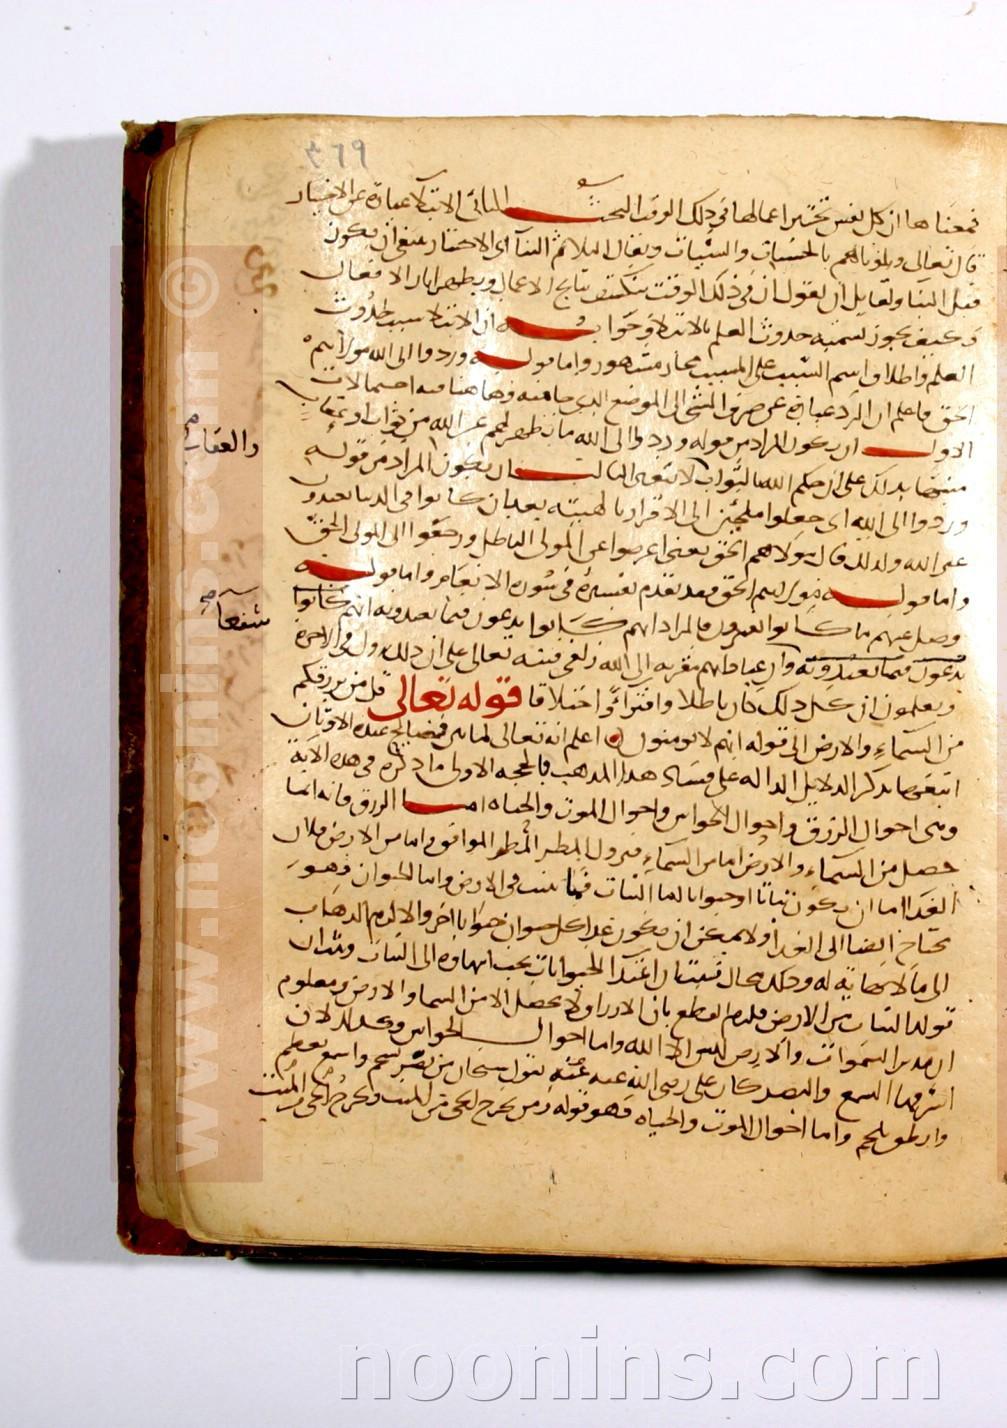 ٣٦٩
فمعناها ان كل نفس تختبر اعمالها في ذلك الوقت البحث الثاني الابتلاء عبارة عن الاختبار
قال تعالى وبلوناهم بالحسنات والسيئات ويقال البلاء ثم الثناء اي الاختبار ينبغي ان يكون
قبل الثناء ولقايل ان يقول ان في ذلك الوقت تنكشف نتايج الاعمال ويظهر اثار الافعال
فكيف يجوز تسمية حدوث العلم بالابتلاء وجوابه ان الابتلاء سبب لحدوث
العلم واطلاق اسم السبب على المسبب مجاز مشهور واما قوله وردوا الى الله مولاهم
الحق فاعلم ان الرد عبارة عن صرف الشي الى الموضع الذي جا منه وهاهنا فيه احتمالات
الاول ان يكون المراد من قوله وردوا الى الله ما يظهر لهم عن الله من ثواب او عقاب
منبها بذلك على ان حكم الله بالثواب لا يتغير الثاني ان يكون المراد من قوله
وردوا الى الله اي جعلوا ملجئين الى الاقرار بالهيته بعد ان كانوا في الدنيا يعبدون
غير الله ولذلك قال مولاهم الحق يعني اعرضوا عن المولى الباطل ورجعوا الى المولى الحق
واما قوله مولاهم الحق فقد تقدم تفسيره في سورة الانعام واما قوله
وضل عنهم ما كانوا يفترون فالمراد انهم كانوا يدعون فيما يعبدونه انهم
شفعا صح
والعقاب صح
يدعون فيما يعبدونه وان عبادتهم مقربة الى الله زلفى فنبه تعالى على ان ذلك يزول في الاخرة
ويعلمون ان كل ذلك كان باطلا وافتراء واختلاقا قوله تعالى قل من يرزقكم
من السماء والارض الى قوله انهم لا يومنون اعلم انه تعالى لما بين فضايح عبدة الاوثان
اتبعها بذكر الدلايل الدالة على فساد هذا المذهب فالحجة الاولى ما ذكره في هذه الآية
وهي احوال الرزق واحوال الحواس واحوال الموت والحياه اما الرزق فانه انما
حصل من السماء والارض اما من السماء فبنزول المطر الموافق واما من الارض فلان
الغذا اما ان يكون نباتا او حيوانا اما النبات فما ينبت في الارض واما الحيوان فهو
يحتاج ايضا الى الغذا ولا يمكن ان يكون غذا كل حيوان حيوانا اخر والا لزم الذهاب
الى ما لا نهاية له وذلك محال فثبت ان اغذية الحيوانات يجب انتهاؤه الى النبات وثبت ان
تولد النبات من الارض فلزم القطع بان الارزاق لا يحصل الا من السما والارض ومعلوم
ان مدبر السموات والارض ليس الا الله واما احوال الحواس فكذلك لان
اشرفها السمع والبصر كان علي رضي الله عنه يقول سبحان من بصر بشحم واسمع بعظم
وانطق بلحم واما احوال الموت والحياه فهو قوله ومن يخرج الحي من الميت ويخرج الميت
www.noonins.com ©
noonins.com